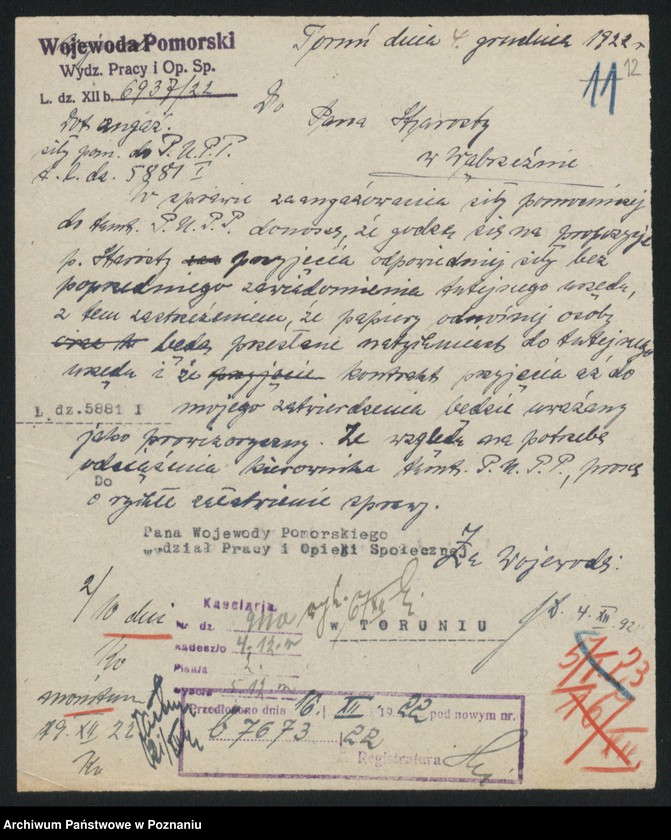 Wojewoda Pomorski
Wydz. Pracy i Op. Sp.
L. dz. XII b. 6937/22
Toruń dnia 4. grudnia 1922 r.
11 12
Do
Pana Starosty
w Wąbrzeźnie
Dot. angaż.
siły pom. do P.U.P.P.
t. l. dz. 5881 I
W sprawie zaangażowania siły pomocniczej
do tamt. P.U.P.P. donoszę, że godzę się na propozycję
p. Starosty przyjęcia odpowiedniej siły bez
poprzedniego zawiadomienia tutejszego urzędu,
z tem zastrzeżeniem, że papiery odnośnej osoby
będą przesłane natychmiast do tutejszego
urzędu i że przyjęcie kontrakt przyjęcia aż do
L. dz. 5881 I mojego zatwierdzenia będzie uważany
jako prowizoryczny. Ze względu na potrzebę
odciążenia kierownika tamt. P.U.P.P., proszę
Do
o rychłe załatwienie sprawy.
Pana Wojewody Pomorskiego
wydział Pracy i Opieki Społecznej
Za Wojewodę:
w TORUNIU
2/ 10 dni
Kancelarja
Nr. dz.
Nadeszło 4.12.
Pisała
5.12
4. XII. 92
monitum
19. XII 22
Przedłożono dnia 16. XII. 1922 pod nowym nr.
6 7673 22
Registratura
Archiwum Państwowe w Poznaniu